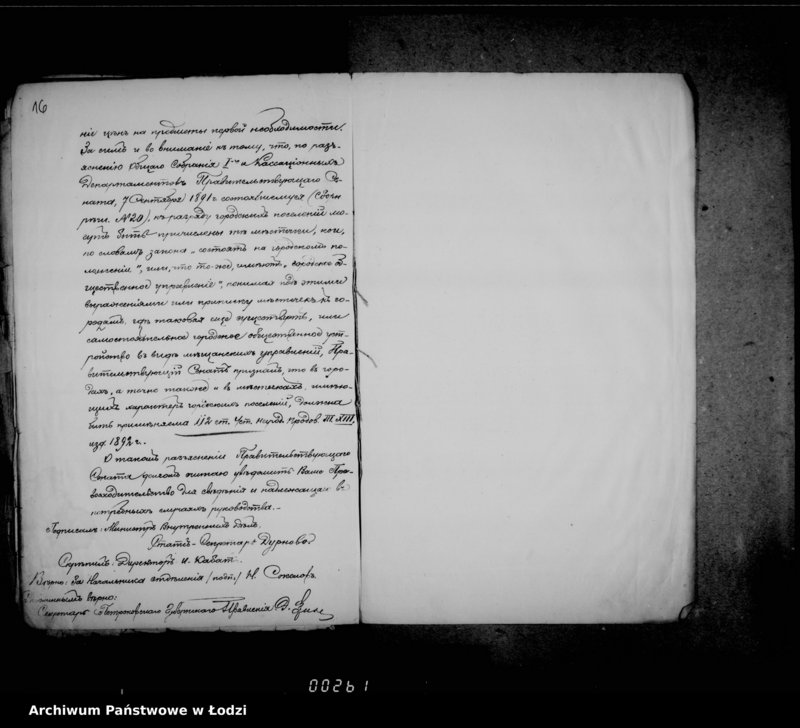 16
ніе цѣнъ на предметы первой необходимости.
За симъ и во вниманіе къ тому, что, по разъ-
ясненію Общаго Собранія I-го и Кассаціонныхъ
Департаментовъ Правительствующаго Се-
ната, 7 Сентября 1891 г. состоявшемуся (Сборн.
рѣш. № 20), къ разряду городскихъ поселеній мо-
гутъ быть причислены тѣ мѣстечки, кои,
по словамъ закона „состоятъ на городскомъ по-
ложеніи", или, что то-же, имѣютъ „городское об-
щественное управленіе", понимая подъ этими
выраженіями или приписку мѣстечекъ къ го-
родамъ, гдѣ таковая еще существуетъ, или
самостоятельное городское общественное уст-
ройство въ видѣ мѣщанскихъ управленій, Пра-
вительствующій Сенатъ призналъ, что въ горо-
дахъ, а точно также и въ мѣстечкахъ, имѣю-
щихъ характеръ городскихъ поселеній, должна
быть примѣняема 112 ст. Уст. Народ. Продов. Т. XIII,
изд. 1892 г.
О такомъ разъясненіи Правительствующаго
Сената долгомъ считаю увѣдомить Ваше Пре-
восходительство для свѣдѣнія и надлежащаго въ
потребныхъ случаяхъ руководства.-
Подписалъ: Министръ Внутреннихъ Дѣлъ,
Статсъ-Секретарь Дурново
Скрѣпилъ: Директоръ И. Кабат
Вѣрно: За Начальника отдѣленія (подп.) Н. Соколовъ
вѣрно:
Секретарь Петроковскаго Губернскаго Правленія
00261
Archiwum Państwowe w Łodzi